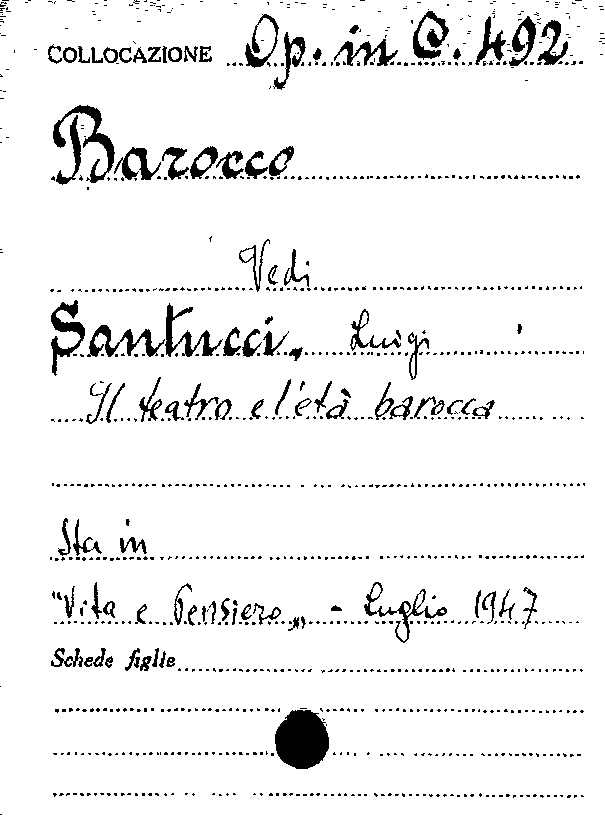 COLLOCAZIONE Op. in C. 492
Barocco
Vedi
Santucci, Luigi
Il teatro e l'età barocca
Sta in
"Vita e Pensiero„ - Luglio 1947
Schede figlie